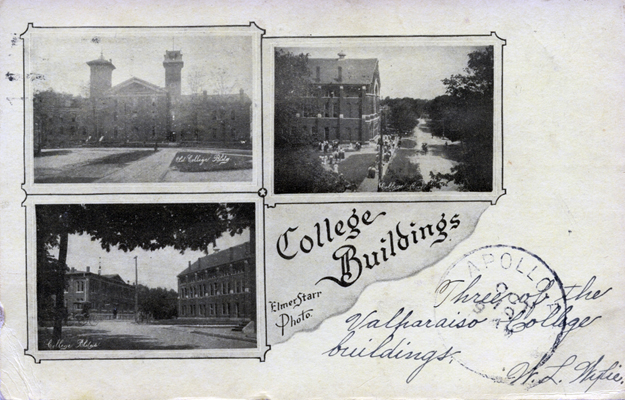 Old College Bldg
College Bldgs
College
Buildings
Elmer Starr
Photo.
APOLLO
Three of the
Valparaiso College
buildings.
W. L. Wylie.